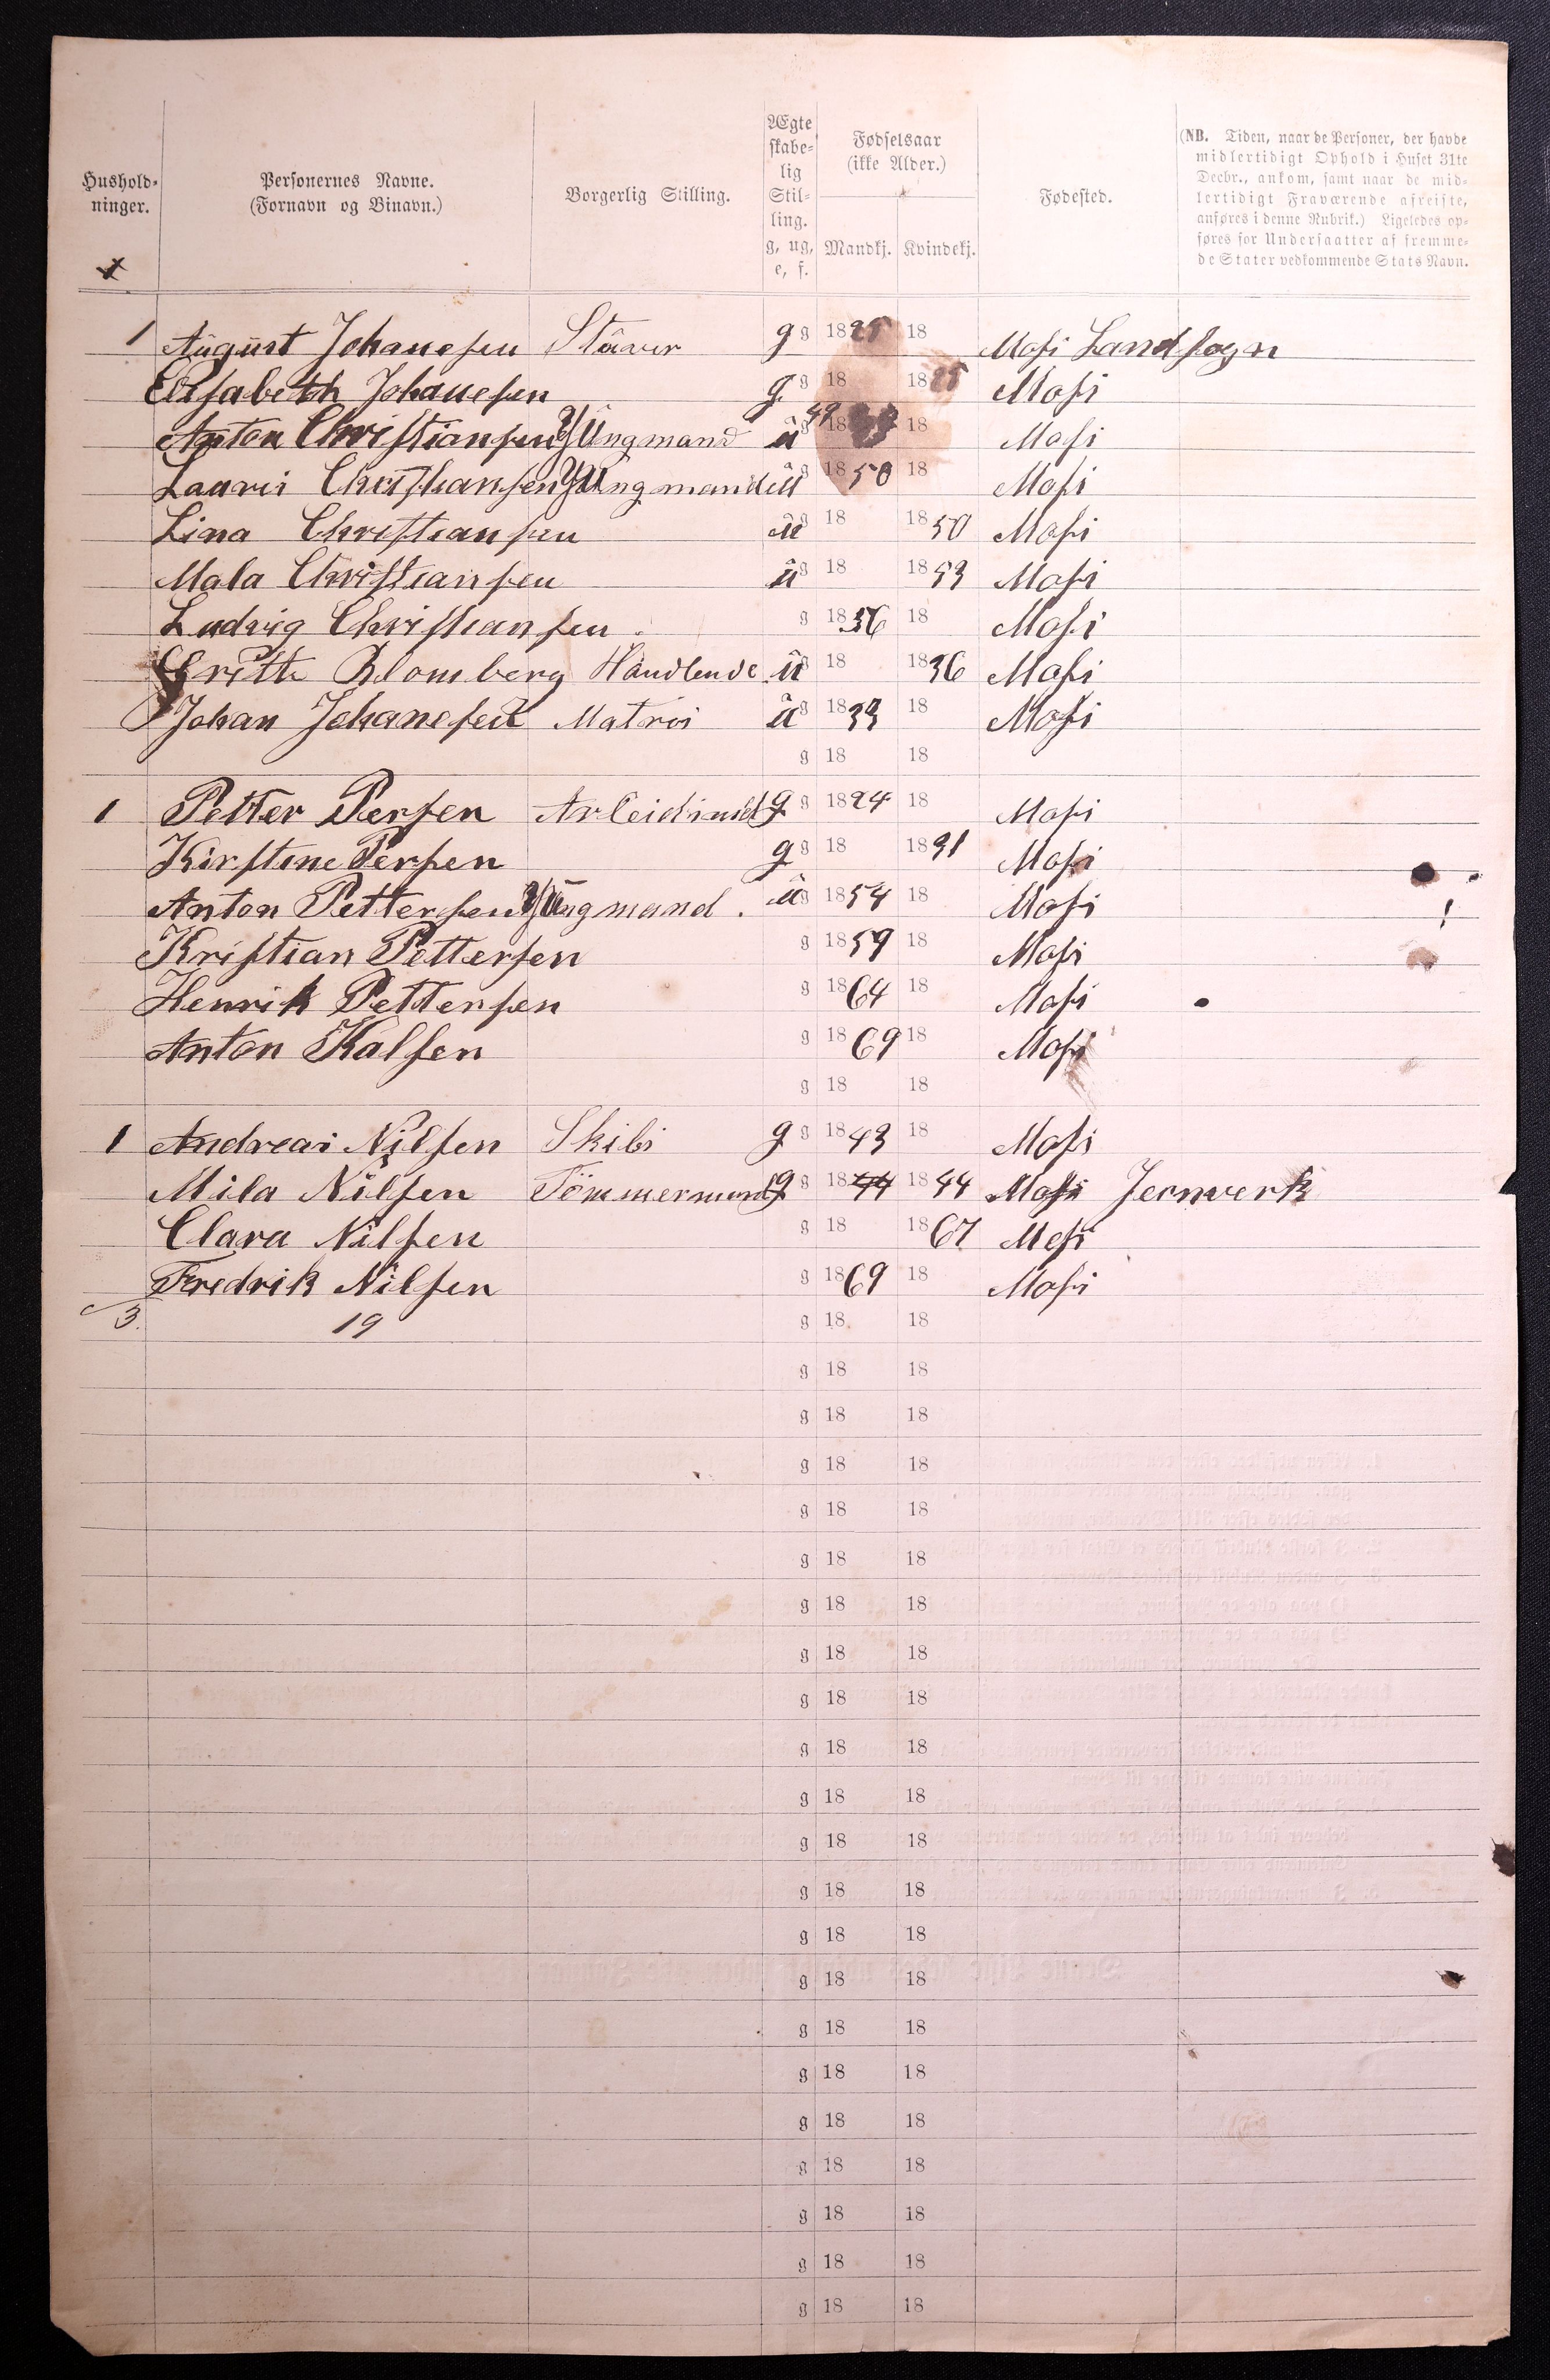 Hushold-
ninger.
Personernes Navne.
(Fornavn og Binavn.)
Borgerlig Stilling.
Ægte
skabe-
lig
Stil-
ling.
g, ug,
e, f.
Fødselsaar
(ikke Alder.)
Mandkj. Kvindekj.
Fødested.
(NB. Tiden, naar de Personer, der havde
midlertidigt Ophold i Huset 31te
Decbr., ankom, samt naar de mid-
lertidigt Fraværende afreiste,
anføres i denne Rubrik.) Ligeledes op-
føres for Undersaatter af fremme-
de Stater vedkommende Stats Navn.
1 August Johanesen Stäver g g 1825 18 Moss Landsogn
Elisabeth Johanesen g g 18 1825 Moss
Anton Christiansen Yüngmand ü g 49 18 18 Moss
Lauris Christiansen Yüngmand ü g 1850 18 Moss
Lina Christiansen ü g 18 1850 Moss
Mala Christiansen ü g 18 1853 Moss
Ludvig Christiansen. g 1856 18 Moss
Grithe Blomberg Handlende ü g 18 1836 Moss
Johan Johanesen Matros ü g 1833 18 Moss
g 18 18
1 Petter Persen Arbeidsmd g g 1824 18 Moss
Kirstine Persen g g 18 1831 Moss
Anton Pettersen Yüngmand. ü g 1854 18 Moss
Kristian Pettersen g 1859 18 Moss
Henrik Pettersen g 1864 18 Moss
Anton Kalsen g 1869 18 Moss
g 18 18
1 Andreas Nilsen Skibs g g 1843 18 Moss
Mila Nilsen Tömmermand g g 1844 1844 Moss Jernverk
Clara Nilsen g 18 1867 Moss
Fredrik Nilsen g 1869 18 Moss
3. 19 g 18 18
g 18 18
g 18 18
g 18 18
g 18 18
g 18 18
g 18 18
g 18 18
g 18 18
g 18 18
g 18 18
g 18 18
g 18 18
g 18 18
g 18 18
g 18 18
g 18 18
g 18 18
g 18 18
g 18 18
g 18 18
g 18 18